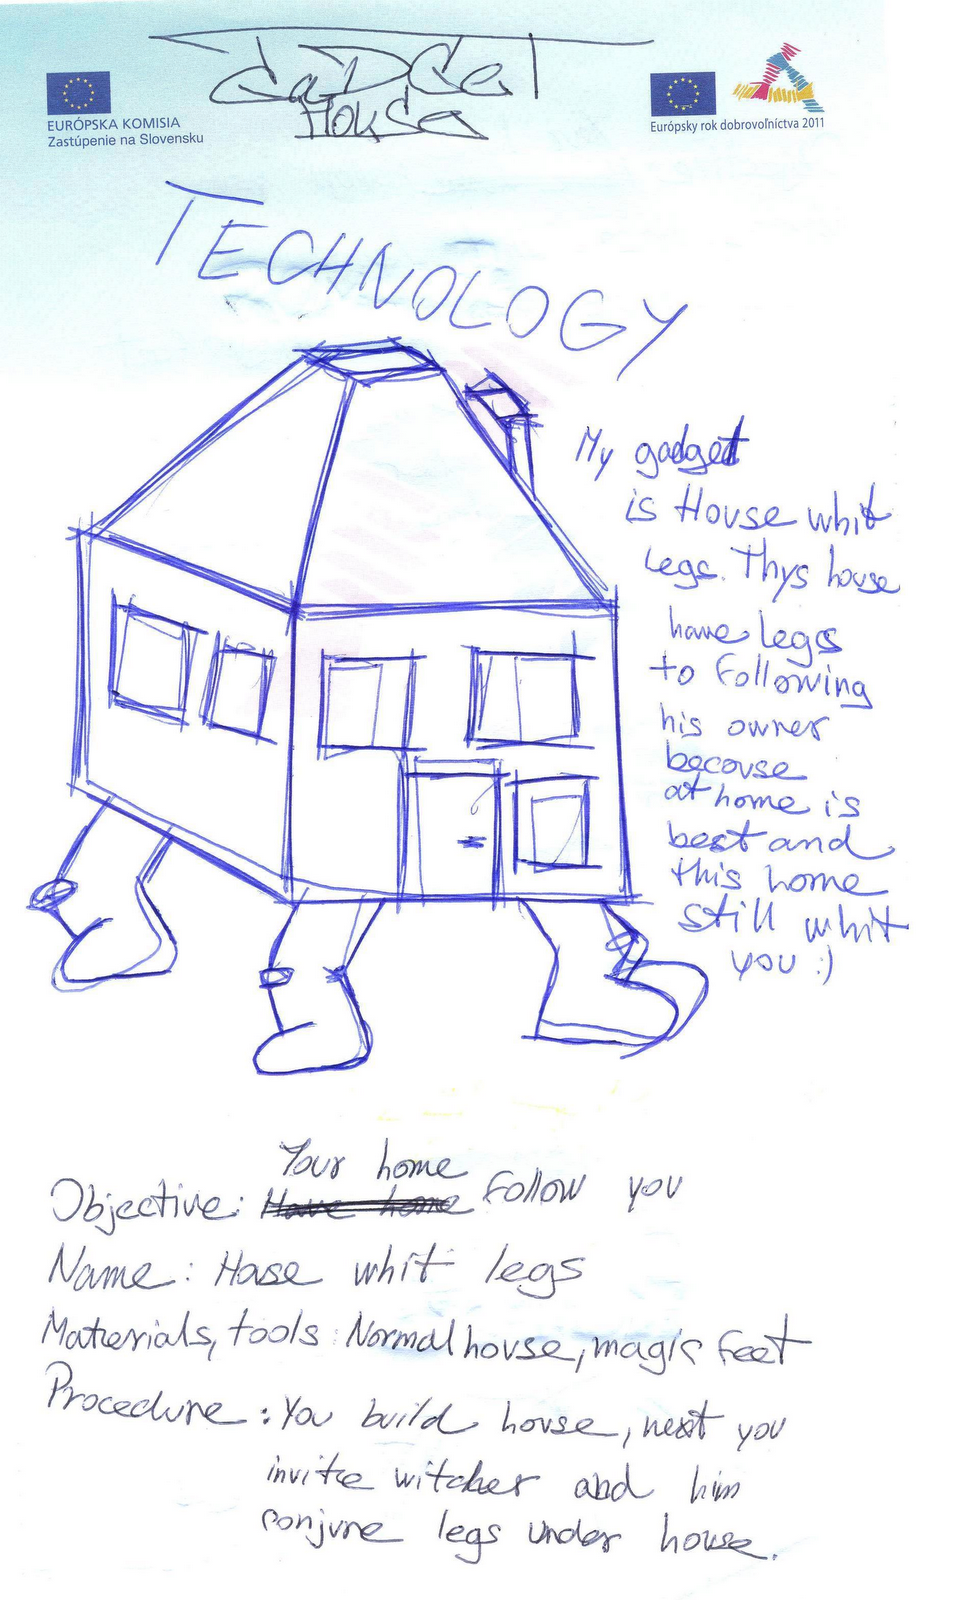 GaDGeT
House
EURÓPSKA KOMISIA
Zastúpenie na Slovensku
Európsky rok dobrovoľníctva 2011
TECHNOLOGY
My gadget
is House whit
legs. Thys house
have legs
to following
his owner
becouse
at home is
best and
this home
still whit
you :)
Your home
Objective: Have home follow you
Name: Hase whit legs
Materials, tools: Normal house, magic feet
Procedure: You build house, next you
invite witcher and him
conjure legs under house.